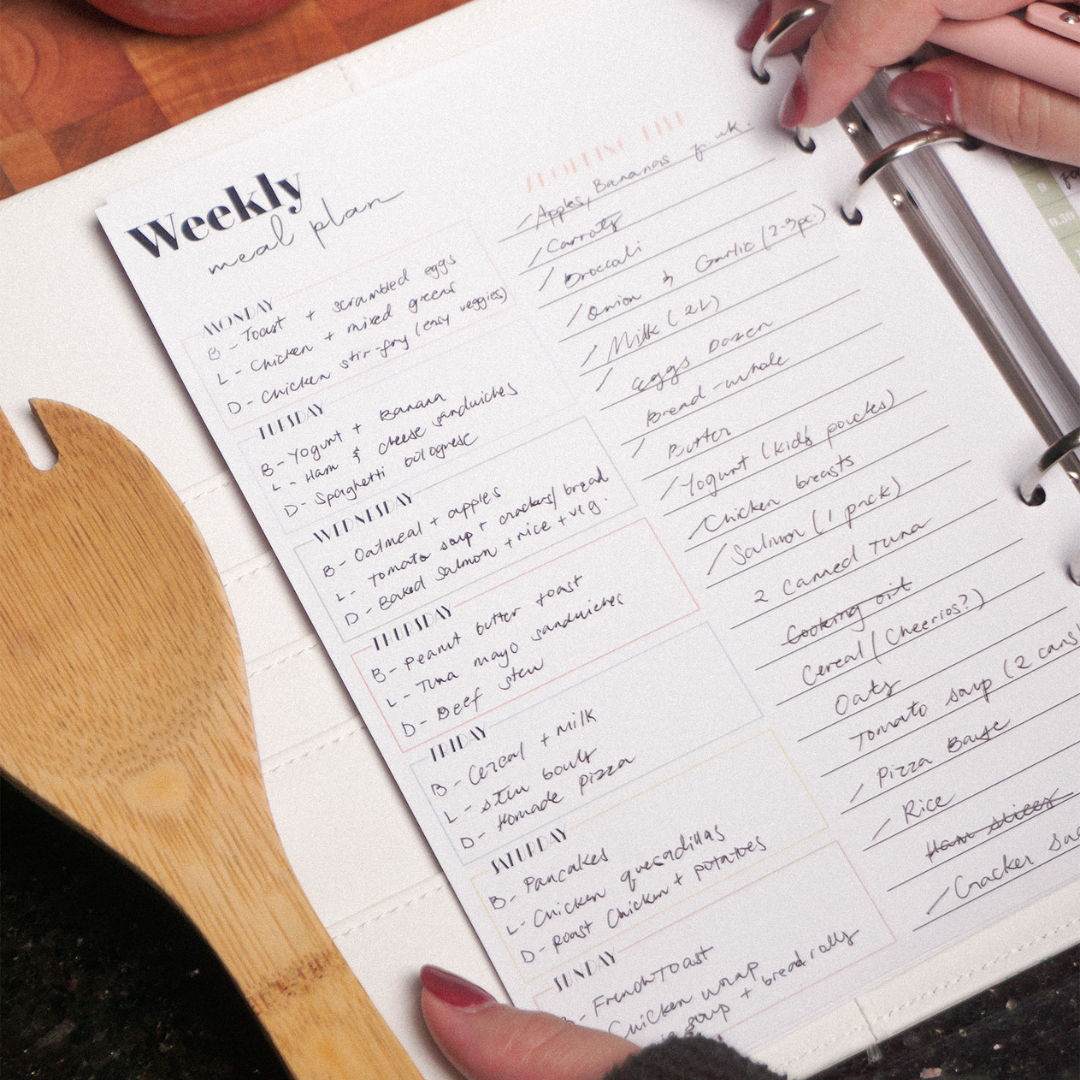 Weekly
meal plan
MONDAY
B - Toast + scrambled eggs
L - Chicken + mixed greens
D - Chicken stir-fry (easy veggies)
TUESDAY
B - Yogurt + Banana
L - Ham & cheese sandwiches
D - Spaghetti bolognese
WEDNESDAY
B - Oatmeal + apples
L - Tomato soup + crackers/bread
D - Baked salmon + rice + veg.
THURSDAY
B - Peanut butter toast
L - Tuna mayo sandwiches
D - Beef stew
FRIDAY
B - Cereal + milk
L - stew bowls
D - Homade pizza
SATURDAY
B - Pancakes
L - Chicken quesadillas
D - Roast Chicken + potatoes
SUNDAY
B - French Toast
Chicken wrap
soup + bread rolls
SHOPPING LIST
/ Apples, Bananas
/ Carrots
/ Broccoli
/ Onion & Garlic (2-3pc)
/ Milk (2L)
/ Eggs Dozen
/ Bread - whole
Butter
/ Yogurt (kids pouches)
/ Chicken breasts
/ Salmon (1 pack)
2 Canned Tuna
Cooking oil
Cereal (Cheerios?)
Oats
Tomato soup (2 cans
/ Pizza Base
/ Rice
Ham slices
/ Cracker
9.30